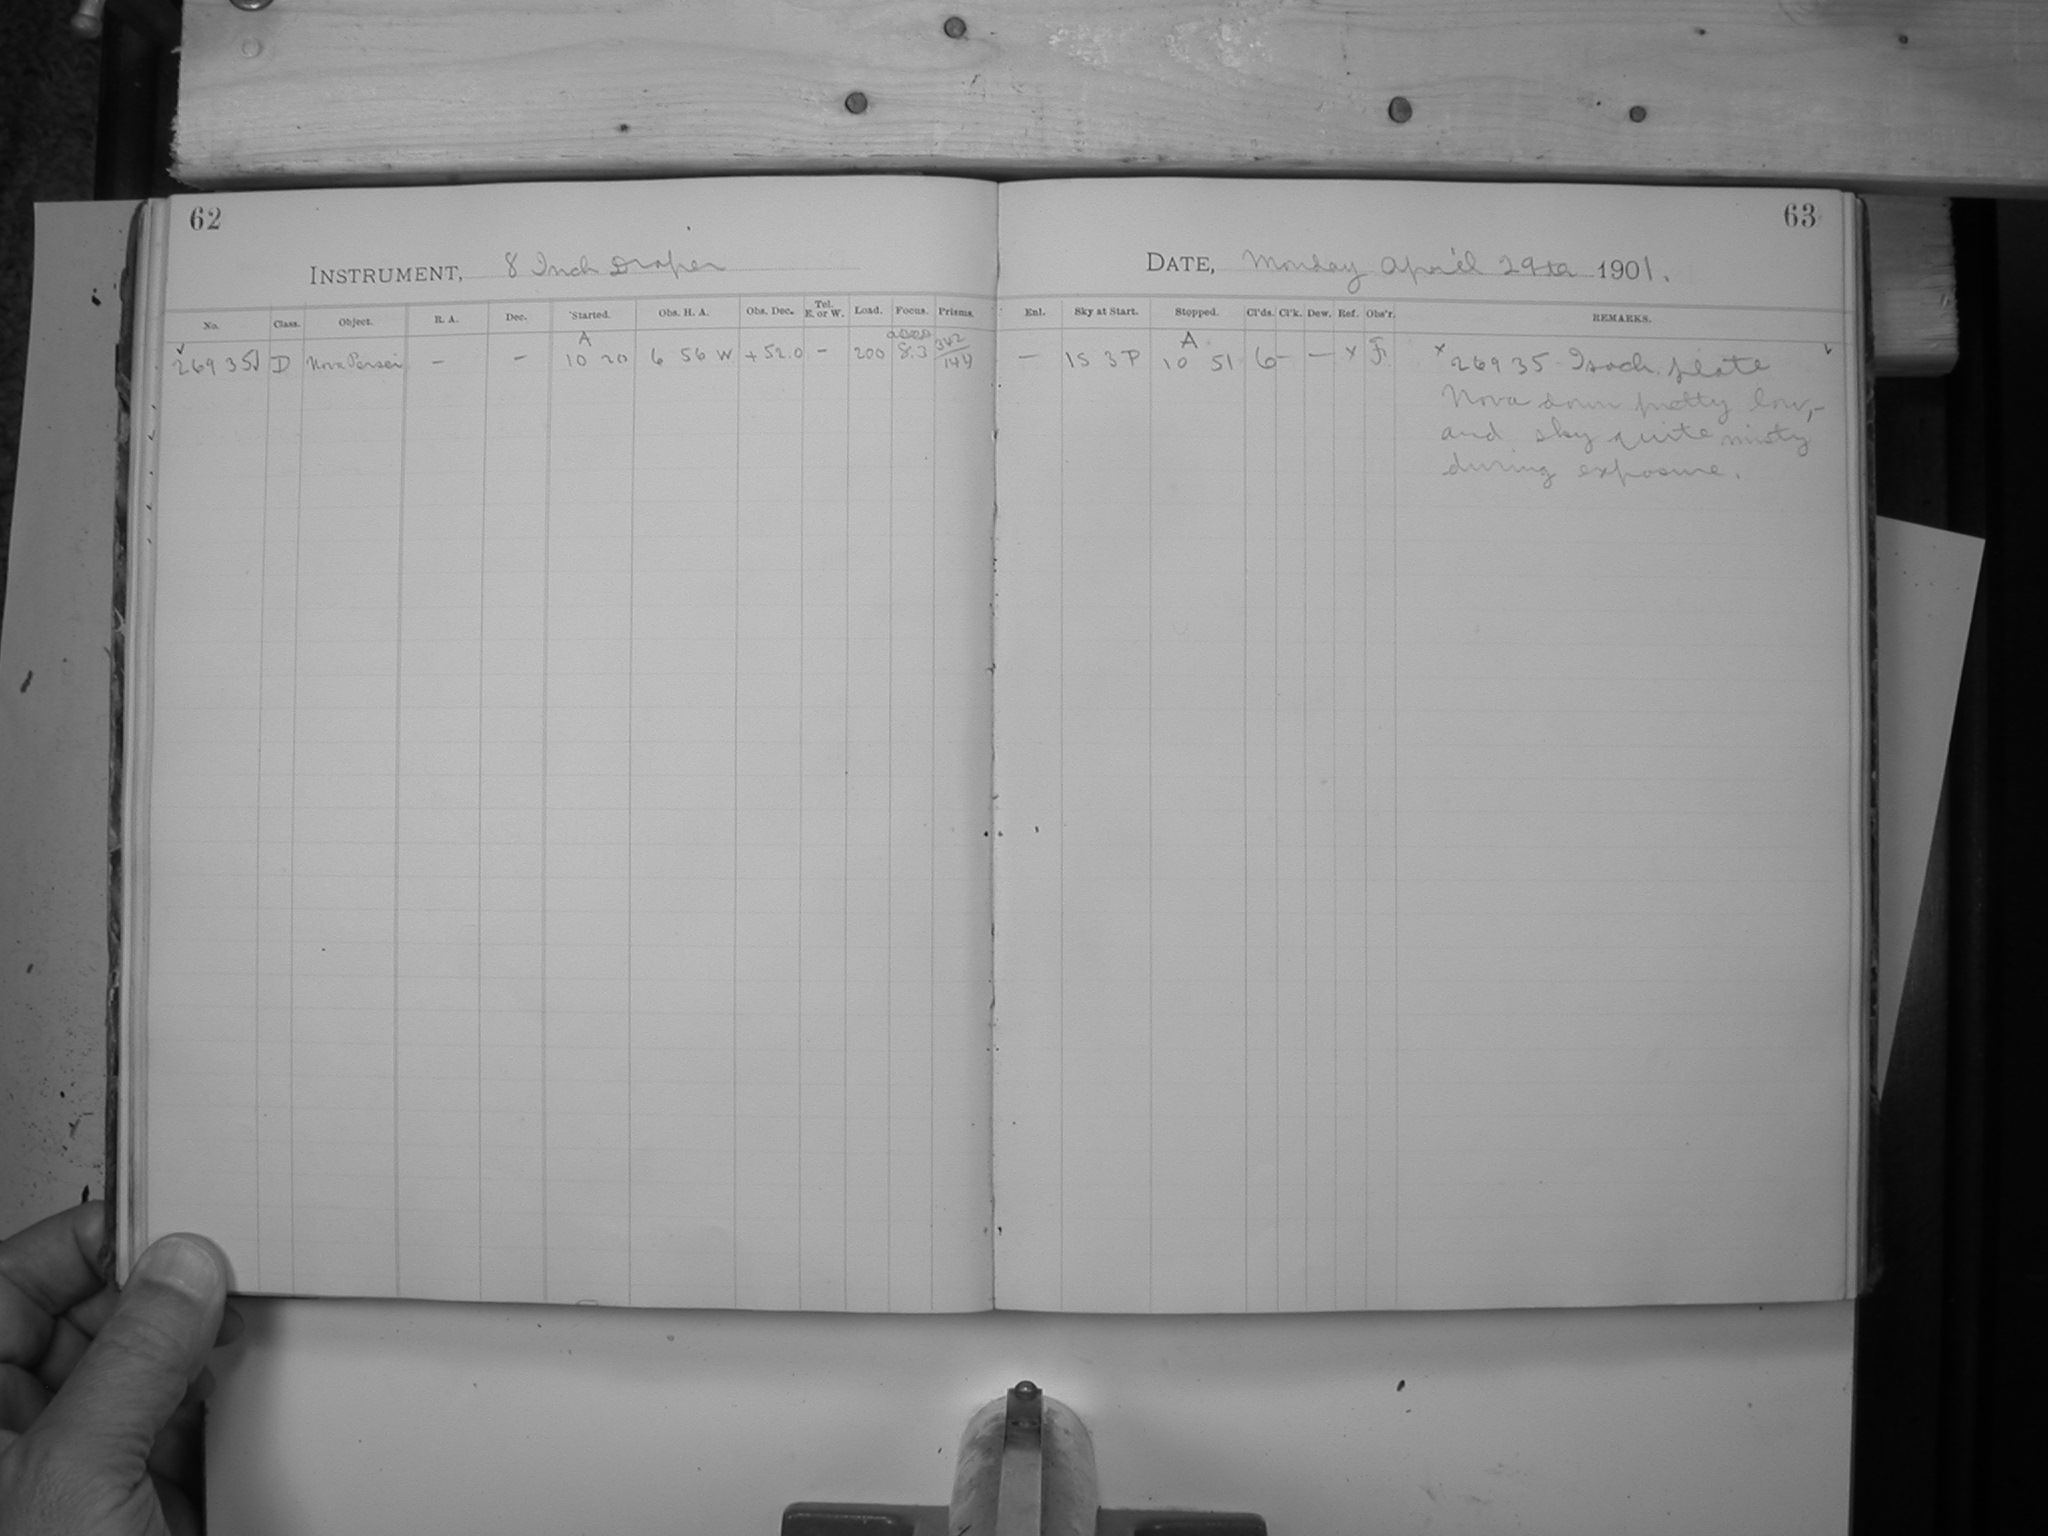 62
INSTRUMENT, 8 Inch Draper
No. Class. Object. R. A. Dec. Started. Obs. H. A. Obs. Dec. Tel. E. or W. Load. Focus. Prisms.
A
26935 D Nova Persei — — 10 20 6 56 W +52.0 — 200 8.3 342/144
63
DATE, Monday April 29th 1901.
Enl. Sky at Start. Stopped. Cl'ds. Cl'k. Dew. Ref. Obs'r. REMARKS.
A
— 1S 3P 10 51 6 — — x F. x 26935 - Isoch. plate
Nova down pretty low,—
and sky quite misty
during exposure.